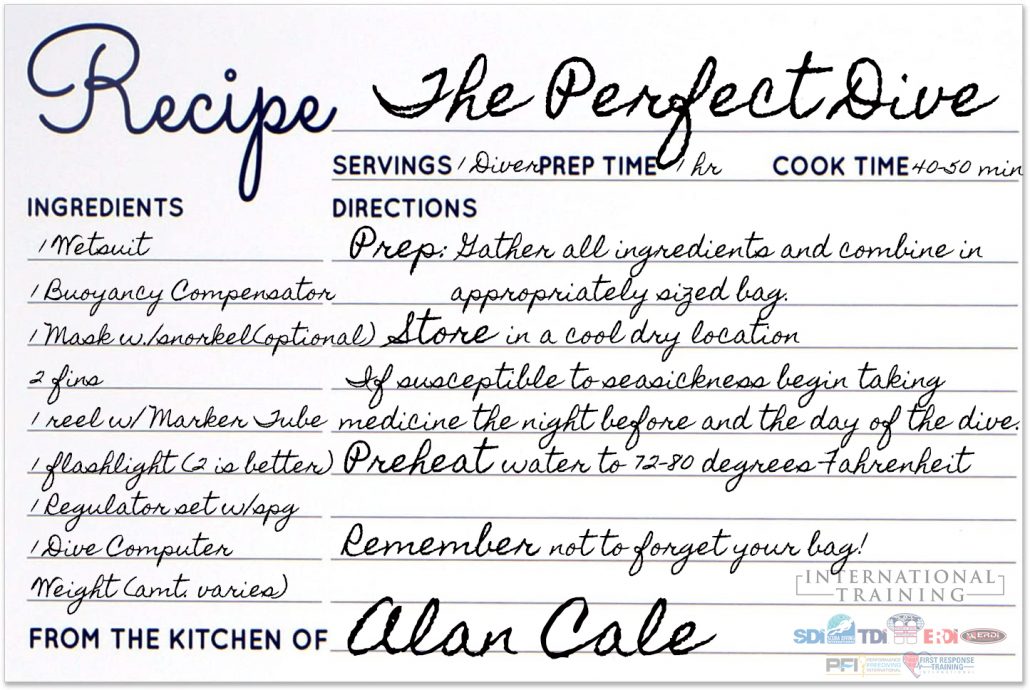 Recipe The Perfect Dive
SERVINGS 1 Diver PREP TIME 1 hr COOK TIME 40-50 min
INGREDIENTS
1 Wetsuit
1 Buoyancy Compensator
1 Mask w./snorkel(optional)
2 fins
1 reel w/ Marker Tube
1 flashlight (2 is better)
1 Regulator set w/spg
1 Dive Computer
Weight (amt. varies)
DIRECTIONS
Prep: Gather all ingredients and combine in
appropriately sized bag.
Store in a cool dry location
If susceptible to seasickness begin taking
medicine the night before and the day of the dive.
Preheat water to 72-80 degrees Fahrenheit
Remember not to forget your bag!
FROM THE KITCHEN OF Alan Cale
INTERNATIONAL
TRAINING
SDI TDI ERDi
PFI PERFORMANCE FREEDIVING INTERNATIONAL FIRST RESPONSE TRAINING INTERNATIONAL